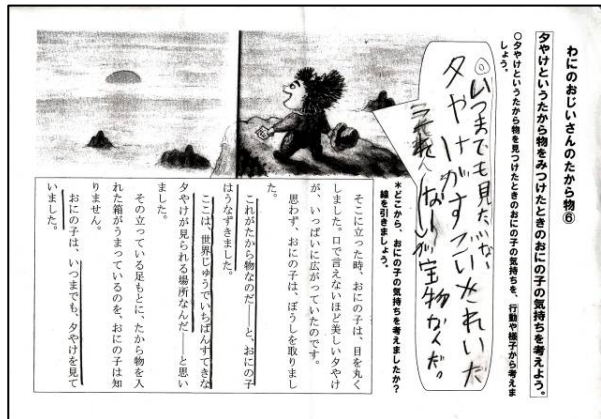 わにのおじいさんのたから物⑥
夕やけというたから物をみつけたときのおにの子の気持ちを考えよう。
○夕やけというたから物を見つけたときのおにの子の気持ちを、行動や様子から考えま
しょう。
◎いつまでも見たいな、
夕やけがすごいきれいだ
宝物かくだ。
*どこから、おにの子の気持ちを考えましたか?
線を引きましょう。
そこに立った時、おにの子は、目を丸く
しました。口で言えないほど美しい夕やけ
が、いっぱいに広がっていたのです。
思わず、おにの子は、ぼうしを取りまし
た。
これがたから物なのだ――と、おにの子
はうなずきました。
ここは、世界じゅうでいちばんすてきな
夕やけが見られる場所なんだ――と思い
ました。
その立っている足もとに、たから物を入
れた箱がうまっているのを、おにの子は知
りません。
おにの子は、いつまでも、夕やけを見て
いました。